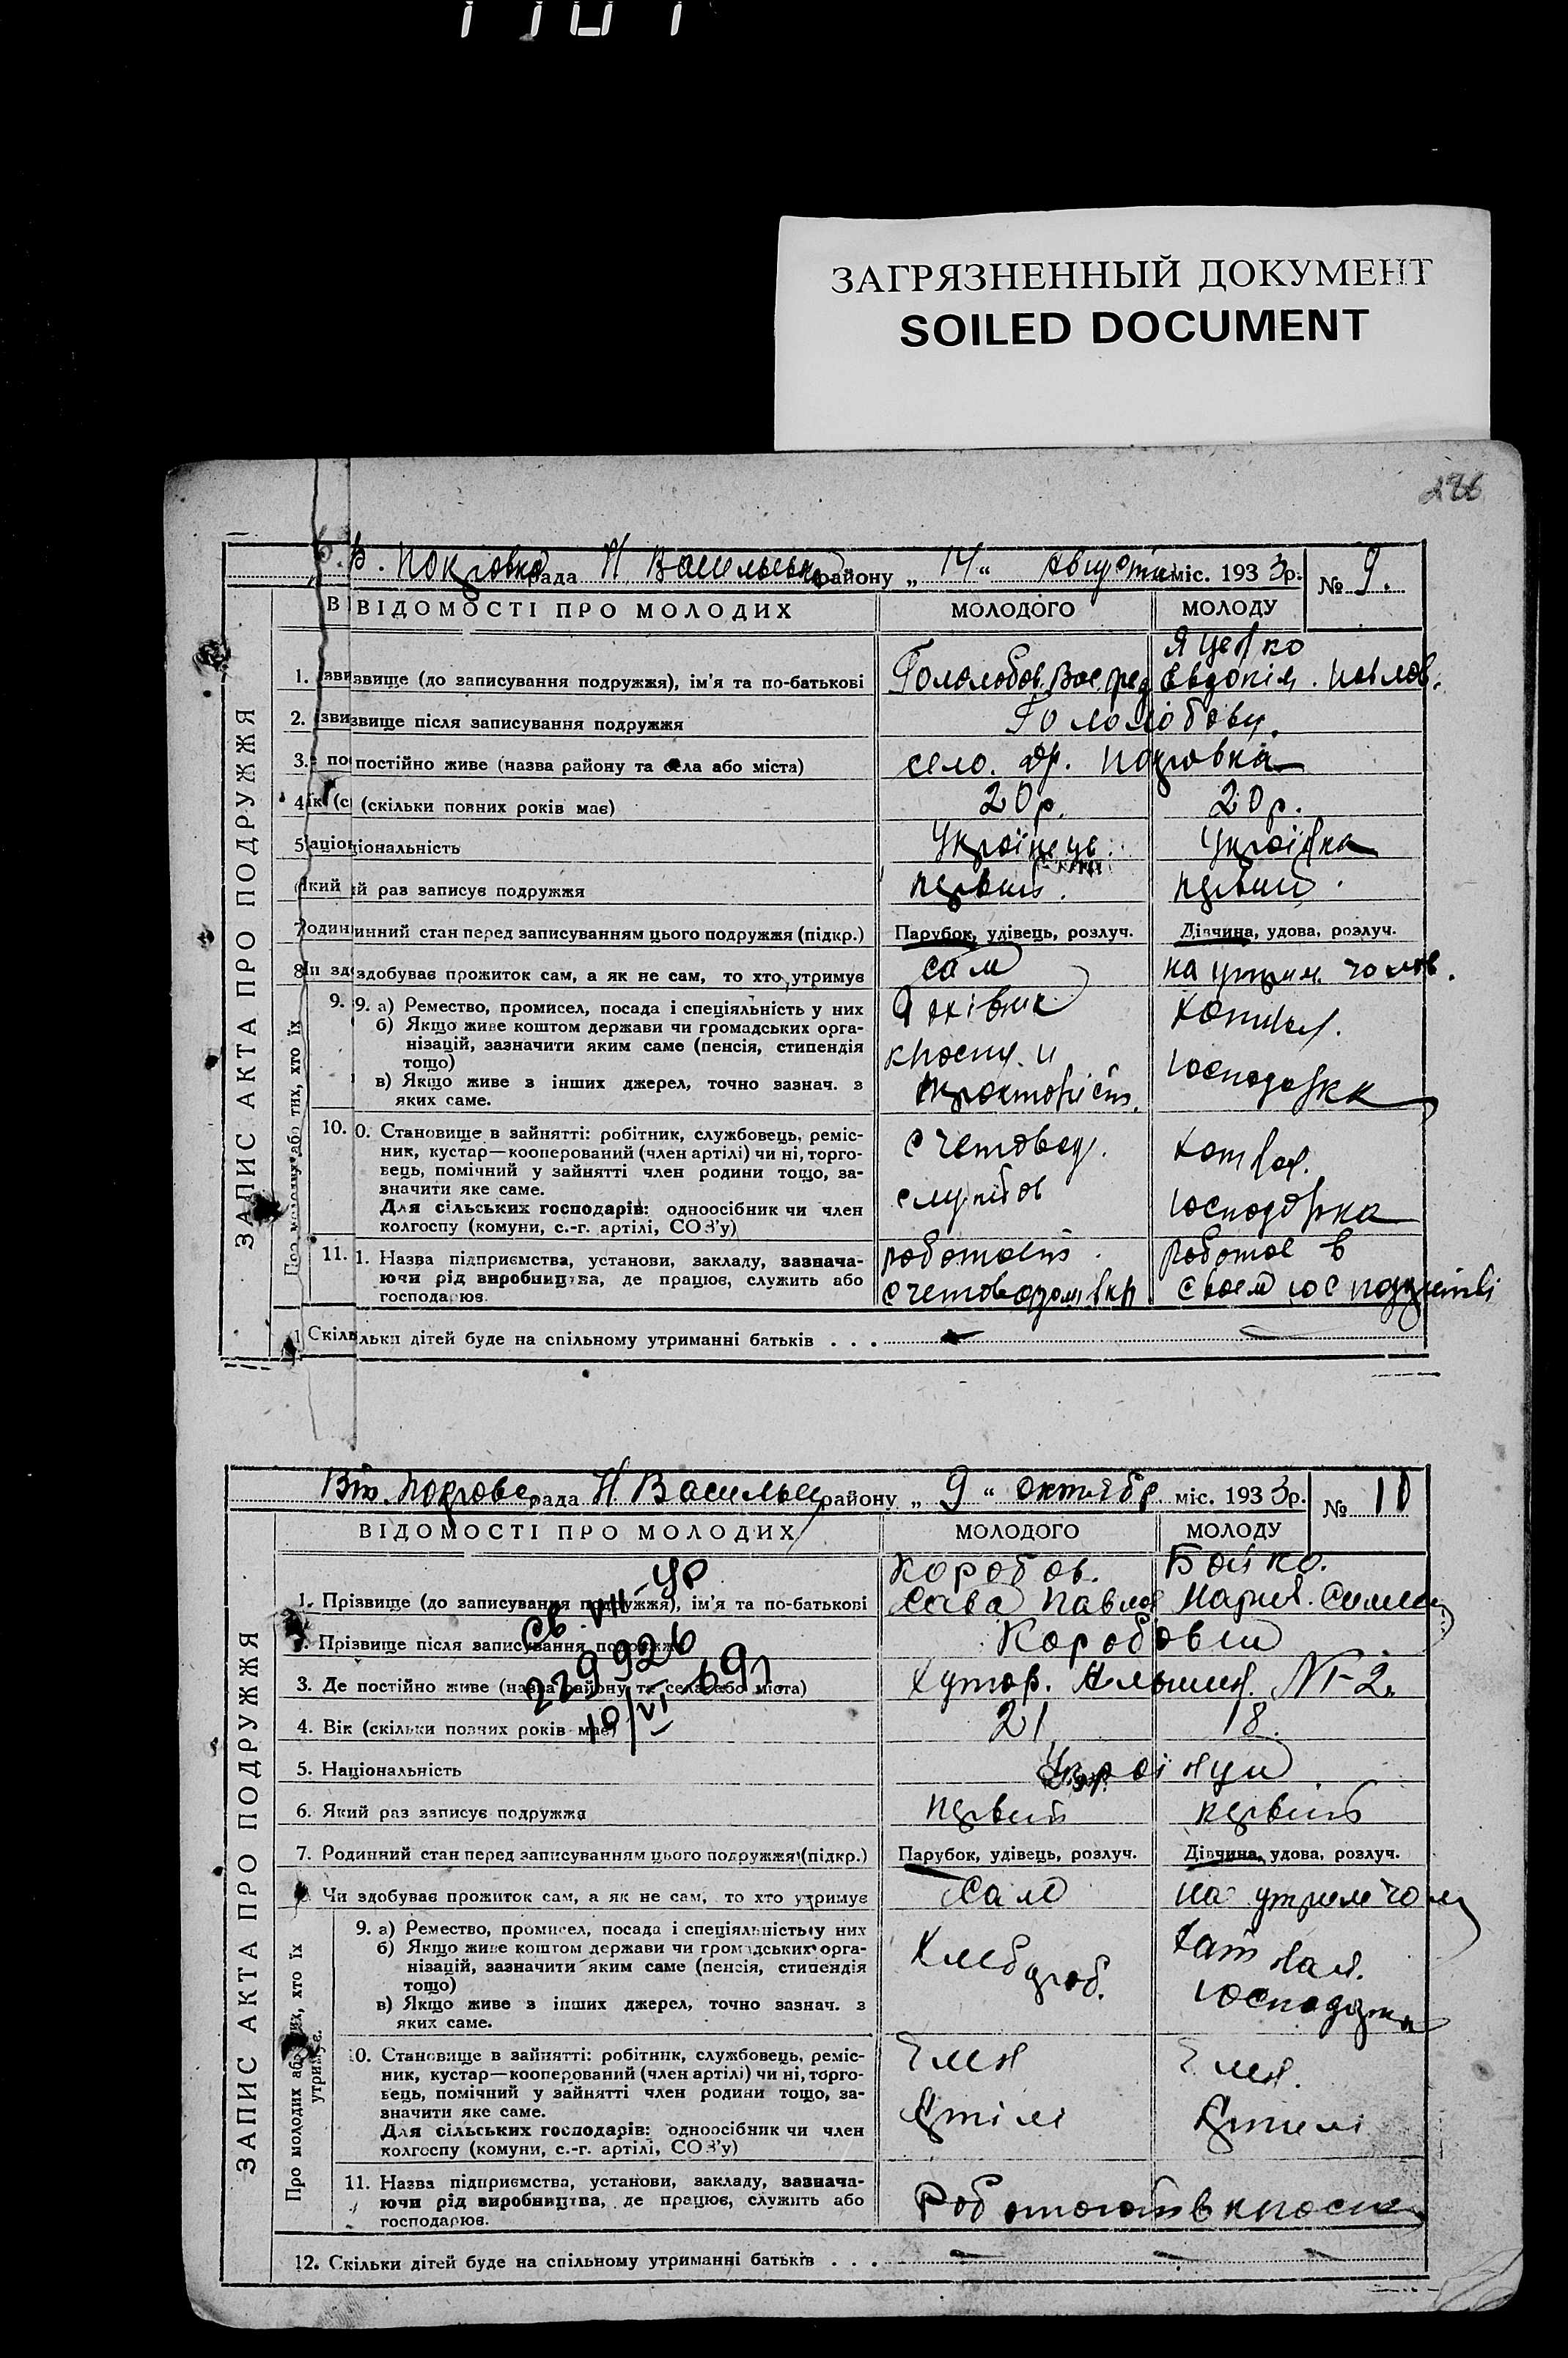 ЗАГРЯЗНЕННЫЙ ДОКУМЕНТ
SOILED DOCUMENT
286
В. Покровка рада Н Васильевка району „ 14 “ августа міс. 1933 р. № 9.
ВІДОМОСТІ ПРО МОЛОДИХ МОЛОДОГО МОЛОДУ
ЗАПИС АКТА ПРО ПОДРУЖЖЯ
Яценко
1. звище (до записування подружжя), ім'я та по-батькові Гололобов. Вас. Евдокія. Павлов.
2. звище після записування подружжя Гололобови.
3. постійно живе (назва району та села або міста) село. Покровка
4. (скільки повних років має) 20 р. 20 р.
5. іональність Українець. Українка
й раз записує подружжя первий. первий.
7. инний стан перед записуванням цього подружжя (підкр.) Парубок, удівець, розлуч. Дівчина, удова, розлуч.
8. здобуває прожиток сам, а як не сам, то хто утримує сам на утрим. чолов.
9. а) Ремество, промисел, посада і спеціяльність у них
б) Якщо живе коштом держави чи громадських орга-
нізацій, зазначити яким саме (пенсія, стипендія
тощо)
в) Якщо живе з інших джерел, точно зазнач. з
яких саме.
господарка
10. Становище в зайнятті: робітник, службовець, реміс-
ник, кустар—кооперований (член артілі) чи ні, торго-
вець, помічний у зайнятті член родини тощо, за-
значити яке саме.
Для сільських господарів: одноосібник чи член
колгоспу (комуни, с.-г. артілі, СОЗ'у)
счетовод.
господарка
11. Назва підприємства, установи, закладу, зазнача-
ючи рід виробництва, де працює, служить або
господарює.
работает. работає в
счетоводом своем господарстві
Скільки дітей буде на спільному утриманні батьків . . .
Віт. Покровс. рада Н Васильев району „ 9 “ октябр. міс. 1933 р. № 10
ВІДОМОСТІ ПРО МОЛОДИХ МОЛОДОГО МОЛОДУ
ЗАПИС АКТА ПРО ПОДРУЖЖЯ
Коробов. Бойко.
1. Прізвище (до записування подружжя), ім'я та по-батькові Сава Павлов Мария. Симео
Прізвище після записування подружжя Коробовы
3. Де постійно живе (назва району та села або міста) Хутор. № 2.
4. Вік (скільки повних років має) 21 18.
св. VII-УР
229926
10/VI 69
5. Національність Українци
6. Який раз записує подружжя первий первий
7. Родинний стан перед записуванням цього подружжя (підкр.) Парубок, удівець, розлуч. Дівчина, удова, розлуч.
Чи здобуває прожиток сам, а як не сам, то хто утримує Сам на утрим чол
Про молодих або тих, хто їх утримує.
9. а) Ремество, промисел, посада і спеціяльність у них
б) Якщо живе коштом держави чи громадських орга-
нізацій, зазначити яким саме (пенсія, стипендія
тощо)
в) Якщо живе з інших джерел, точно зазнач. з
яких саме.
Хлебороб. господарка
10. Становище в зайнятті: робітник, службовець, реміс-
ник, кустар—кооперований (член артілі) чи ні, торго-
вець, помічний у зайнятті член родини тощо, за-
значити яке саме.
Для сільських господарів: одноосібник чи член
колгоспу (комуни, с.-г. артілі, СОЗ'у)
Член Член.
Артілі Артелі
11. Назва підприємства, установи, закладу, зазнача-
ючи рід виробництва, де працює, служить або
господарює.
Работают в
12. Скільки дітей буде на спільному утриманні батьків . . .